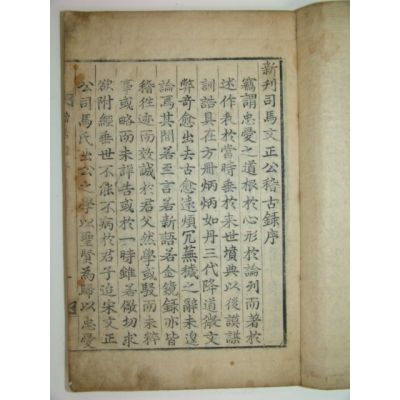 新刊司馬文正公稽古錄序
竊謂忠愛之道根於心形於論列而著於
述作表於當時垂於來世墳典以後謨謀
訓誥具在方冊炳炳如丹三代降道微文
弊奇愈出去古愈遠煩冗蕪穢之辭未遑
論焉其間若至言若新語若金鏡錄亦皆
稽徃迹而效誠於君父然學或駁而未粹
事或略而未詳告或於一時雖若儆切求
欲附經垂世不能不病於君子迨宋文正
公司馬氏出公之學以聖賢為歸以忠愛